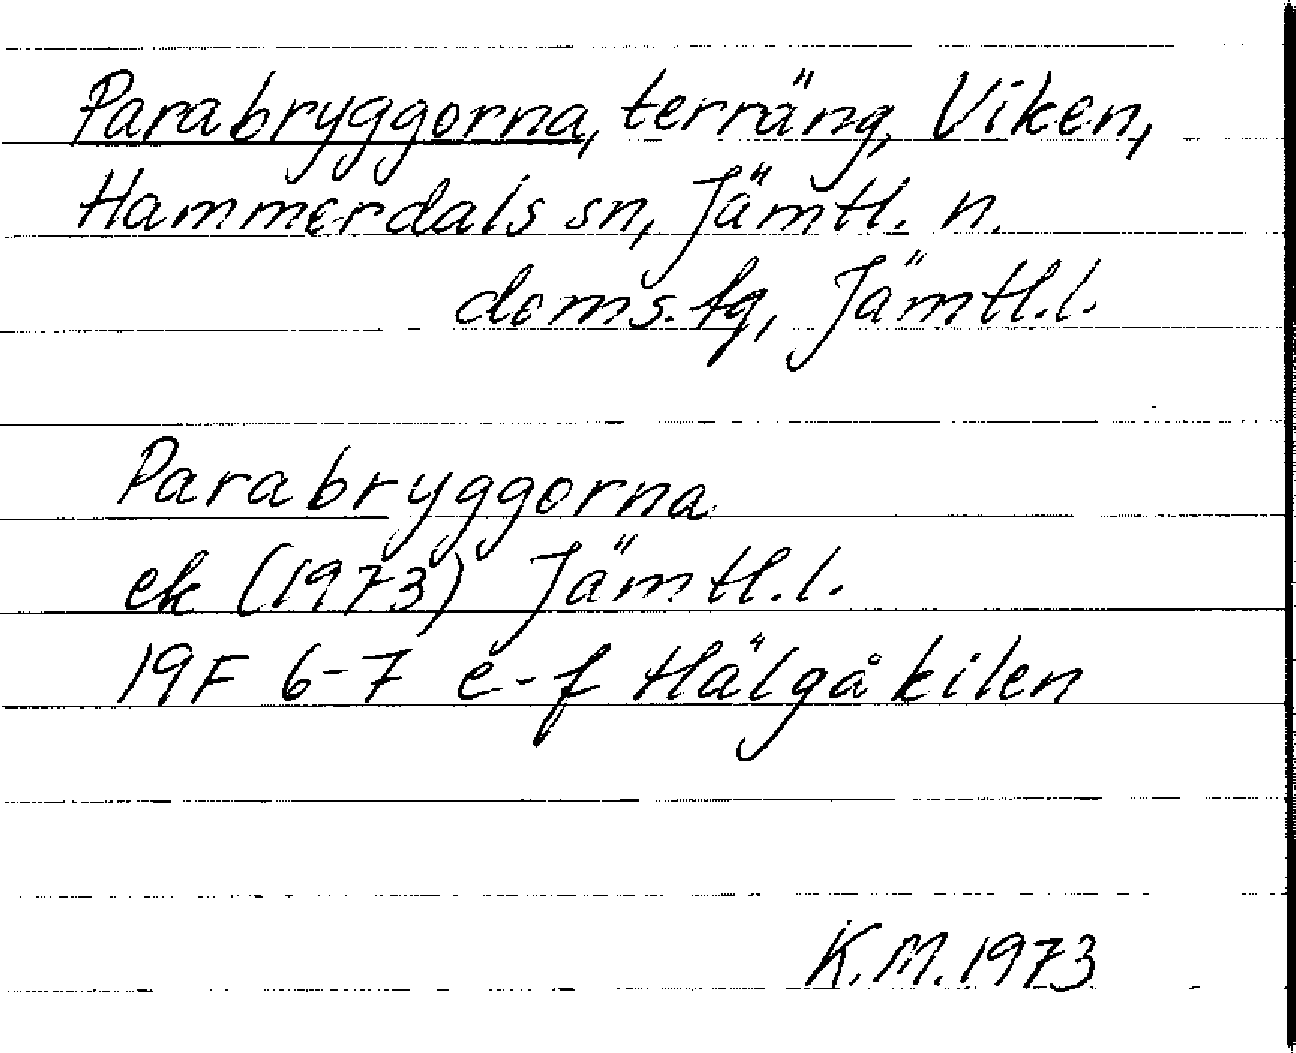 Parabryggorna, terräng, Viken,
Hammerdals sn, Jämtl. n.
doms. tg, Jämtl. l.
Parabryggorna
ek (1973) Jämtl. l.
19F 6-7 e-f Hälgåkilen
K.M. 1973